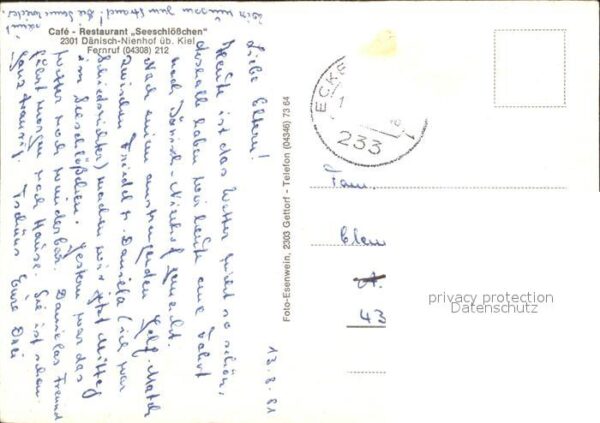 Café - Restaurant „Seeschlößchen"
2301 Dänisch-Nienhof üb. Kiel
Fernruf (04308) 212
13.8.81
Liebe Eltern!
Heute ist das Wetter nicht so schön,
deshalb haben wir heute eine Fahrt
nach Dänisch-Nienhof gemacht.
Nach einem anstrengenden Golf-Match
zwischen Friedel + Daniela (ich war
Schiedsrichter) machen wir jetzt Mittag
im Seeschlößchen. Gestern war das
Wetter noch wunderbar. Danielas Freund
fährt morgen nach Hause. Sie ist schon
ganz traurig. Tschüss Eure Drei
zum Strand!
Foto-Esenwein, 2303 Gettorf - Telefon (04346) 73 64
ECKE
233
Fam.
43
privacy protection
Datenschutz